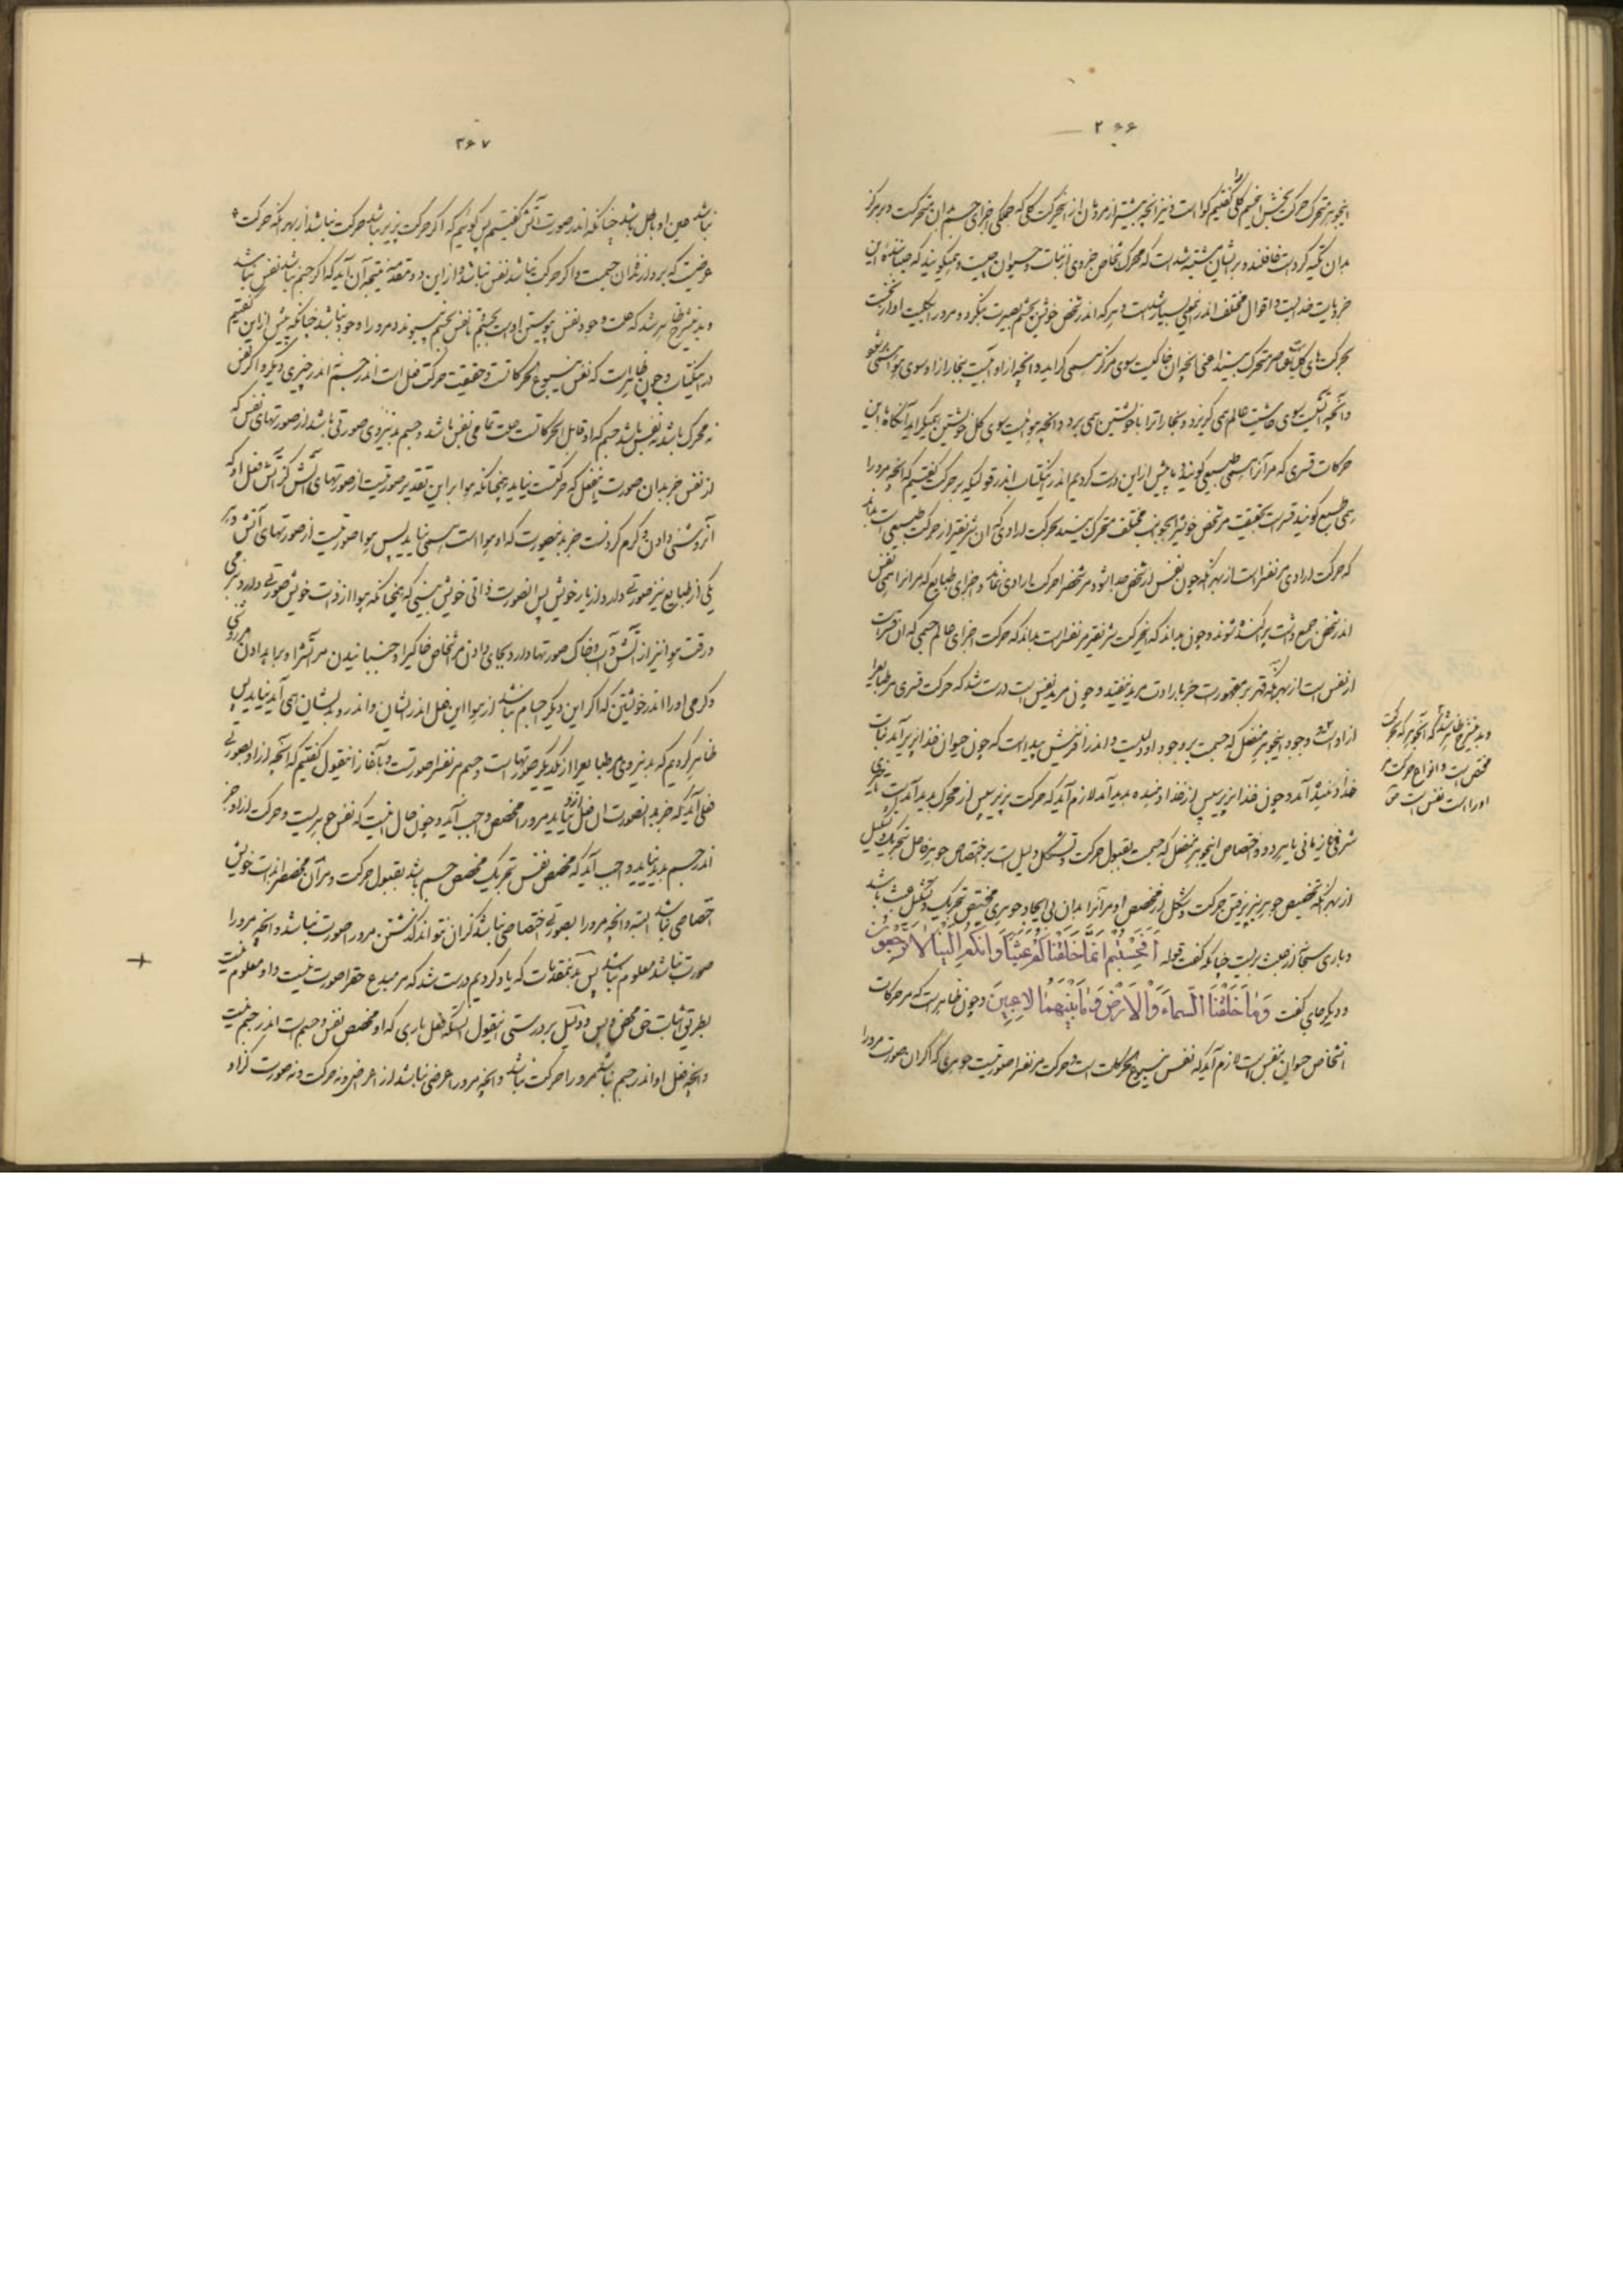 ۲۶۶
این جوهر متحرک حرکت بخش جسم کلی گفتیم گواست و نیز آنچه بیشتر از مردمان از این حرکت کلی که جملگی اجزای جسم بدان متحرکست و بر مرکز
بدان تکیه کرده است غافلند و بر ایشان مشتبه شده است که محرک اشخاص جزوی از نبات و حیوان چیست و همی گویند که جنباننده این
جزویات خدایست و اقوال مختلف اندر این معنی بسیار شده است و هر که اندر شخص خویش بچشم بصیرت بنگرد و مرو را بکلیت او از نخست
بحرکت های کلیات عناصر متحرک بیند اعنی آنچه از آن خاکیست سوی مرکز همی گراید و آنچه از او آبیست بخار از او سوی هوا همی بر شود
و آنچه آتشیست سوی حاشیت عالم همی گریزد و بخار اترا با خویشتن همی برد و آنچه هوائیست سوی کل خویشتن همیگراید آنگاه باین
حرکات قسری که مر آنرا همی طبیعی گویند و ما پیش از این درست کردیم اندر این کتاب اندر قولیکه بر حرکت گفتیم که آنچه مرو را
همی طبع گویند قسر است بحقیقت مر شخص خویش را بجوانب مختلف متحرک بیند بحرکت ارادی که آن شریفتر از حرکت طبیعی است بداند
که حرکت ارادی مر نفس راست از بهر آنکه چون نفس از شخص جدا شود مر شخص را حرکت ارادی نماند و اجزای طبایع که مر آنرا همی نفس
اندر شخص جمع داشت پراکنده شوند و چون بداند که این حرکت شریفتر مر نفس راست بداند که حرکت اجزای عالم جسمی که آن قسریست
از نفس است از بهر آنکه قهر بر مقهورات جز بارادت مرید نیفتد و چون مرید نفس است درست شد که حرکت قسری مر طبایع را
از او است و وجود این جوهر منفعل که جسمست بر وجود او دلیلست و اندر آفرینش پیداست که چون حیوان غذا پذیر آمد نبات
غذا دهنده آمد و چون غذا پذیر سپس از غذا دهنده پدید آمد لازم آید که حرکت پذیر سپس از محرک پدید آمده است
شرفی نه زمانی بایزد و اختصاص این جوهر منفعل که جسمست بقبول حرکت و تشکل دلیل است بر اختصاص جوهر فاعل بتحریک و تشکیل
از بهر آنکه تخصیص جوهر پذیر پذیرفتن حرکت و شکل از مخصص او مر آنرا بدان بی ایجاد جوهری مختص بتحریک و تشکیل عبث باشد
و باری سبحانه از عبث بریست چنانکه گفت قوله أَفَحَسِبْتُمْ أَنَّمَا خَلَقْنَاكُمْ عَبَثًا وَأَنَّكُمْ إِلَيْنَا لَا تُرْجَعُونَ
و دیگر جای گفت وَمَا خَلَقْنَا السَّمَاءَ وَالْأَرْضَ وَمَا بَيْنَهُمَا لَاعِبِينَ و چون ظاهر است که مر حرکات
اشخاص حیوان بنفس است لازم آید که نفس ینبوع الحرکات است و حرکت مر نفس را صورتیست جوهری که اگر آن صورت مرو را
و بدین شرح ظاهر شد که آن جوهر که حرکت
مختص است و انواع حرکت مر
او راست نفس است
۲۶۷
نباشد عین او باطل باشد چنانکه اندر صورت آتش گفتیم پس گوئیم که اگر حرکت پذیر نباشد حرکت نباشد از بهر آنکه حرکت
عرضیست که بردارنده آن جسمست و اگر حرکت نباشد نفس نباشد و از این دو مقدمه نتیجه آن آید که اگر جسم نباشد نفس نباشد
و بدین شرح ظاهر شد که علت وجود نفس پیوستن او است بجسم تا نفس بجسم نپیوندد مرو را وجود نباشد چنانکه پیش از این گفتیم
در این کتاب و چون ظاهر است که نفس ینبوع الحرکاتست و حقیقت حرکت فعل است اندر جسم اندر چیزی دیگر و اگر نفس
نه محرک باشد نه نفس باشد جسم که او قابل الحرکاتست علت تمامی نفس باشد و جسم بدین روی صورتی باشد از صورتهای نفس که
از نفس جز بدان صورت این فعل که حرکتست نیاید چنانکه هوا بر این تقدیر صورتیست از صورتهای آتش کز آتش فعل او که
آن روشنی دادن و گرم کردنست جز بدین صورت که او هوا است همی نیاید پس هوا صورتیست از صورتهای آتش و هر
یکی از طبایع نیز صورتی دارد از یار خویش پس از صورت ذاتی خویش نبینی که همچنانکه هوا از ذات خویش صورتی دارد و نرمی
و رقت هوا نیز از آتش و آب و خاک صورتها دارد و بجای دادن مر اشخاص خاکی را و جنبانیدن مر آتش را و برآید او آن روشنی
و گرمی او را اندر خویشتن که اگر این دیگر اجسام نباشند از هوا این فعل اندر ایشان و اندر او بدیشان همی آید نیاید پس
ظاهر کردیم که بدین روی مر طبایع را از یکدیگر صورتهاست و جسم مر نفس را صورتست و بآغاز این قول گفتیم که آنچه از او بصورتی
فعلی آید که جز بدان صورت آن فعل از او نیاید مرو را مخصص واجب آید و چون حال اینست که نفس جوهریست و حرکت از او جز
اندر جسم پدید نیاید واجب آید که مخصص نفس بتحریک مخصص جسم باشد بقبول حرکت و مر آن مخصص را بذات خویش
اختصاصی نباشد البته و آنچه مرورا بصورتی اختصاصی نباشد کز آن نتواند گذشتن مرورا صورت نباشد و آنچه مرورا
صورت نباشد معلوم نباشد پس بدین مقدمات که یاد کردیم درست شد که مر مبدع حق را صورت نیست و او معلوم نیست
بطریق اثبات حق محض و بس و دلیل بر درستی این قول آنستکه فعل باری که او مخصص نفس و جسم است اندر جسم نیست
و آنچه فعل او اندر جسم نباشد مرورا حرکت نباشد و آنچه مرورا عرضی نباشد از اعراض و نه حرکت و نه صورت کز او